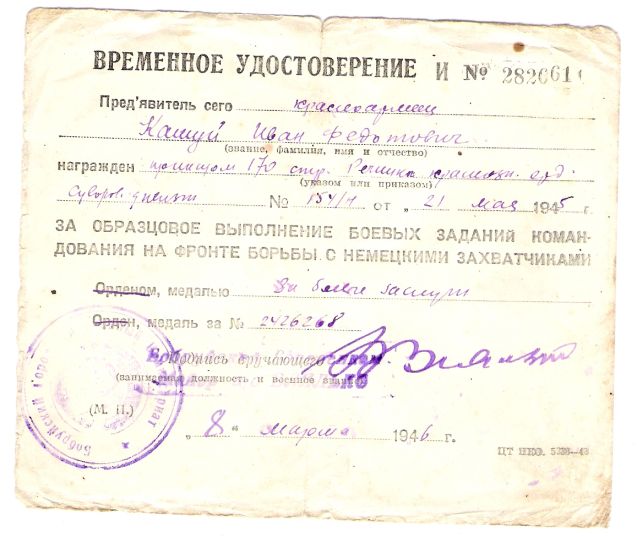 ВРЕМЕННОЕ УДОСТОВЕРЕНИЕ И № 282661
Пред'явитель сего красноармеец
Кашуй Иван Федотович
(звание, фамилия, имя и отчество)
награжден приказом 170 стр. краснозн. орд.
(указом или приказом)
Суворов. дивизии № 154/н от „ 21 мая 1945 г.
ЗА ОБРАЗЦОВОЕ ВЫПОЛНЕНИЕ БОЕВЫХ ЗАДАНИЙ КОМАН-
ДОВАНИЯ НА ФРОНТЕ БОРЬБЫ С НЕМЕЦКИМИ ЗАХВАТЧИКАМИ
Орденом, медалью За боевые заслуги
Орден, медаль за № 2426268
Подпись вручающего
(занимаемая должность и военное звание)
(М. П.)
„ 8 " марта 1946 г.
ЦТ НКО.
Бобруйский Горо